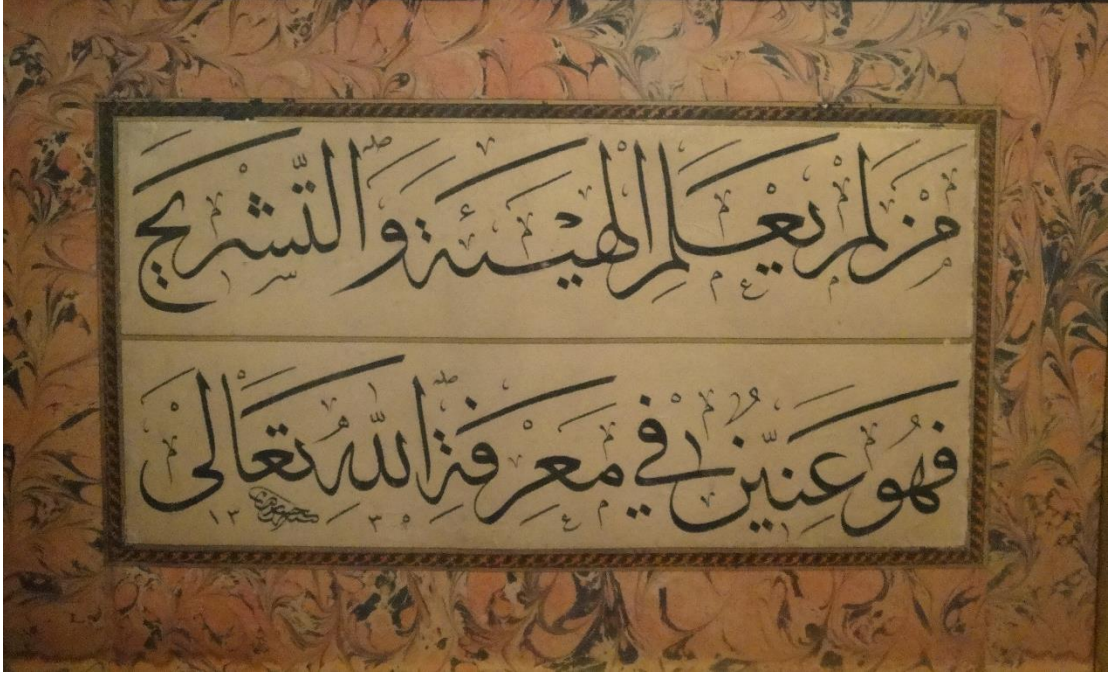 مَنْ لَمْ يَعْلَمِ الْهَيْئَةَ وَالتَّشْرِيحَ
فَهُوَ عَنِينٌ فِي مَعْرِفَةِ اللهِ تَعَالَى